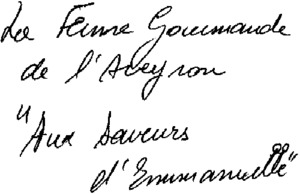 La Ferme Gourmande
de l'Aveyron
"Aux Saveurs
d'Emmanuelle"